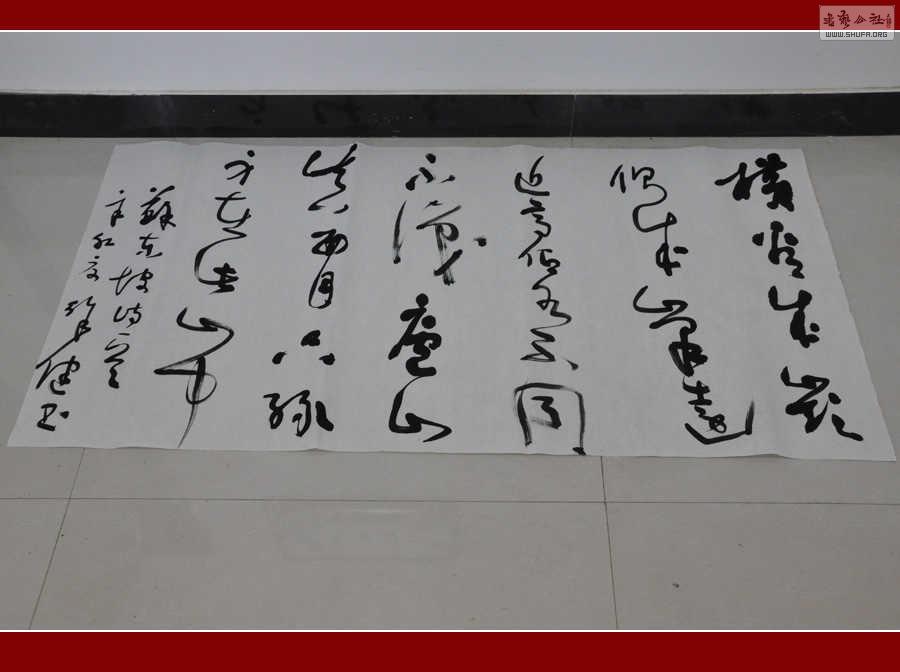 書藝公社
WWW.SHUFA.ORG
橫看成嶺
側成峯遠
近高低各不同
不識廬山
真面目只緣
身在此山中
蘇東坡詩一
辛卯 健書